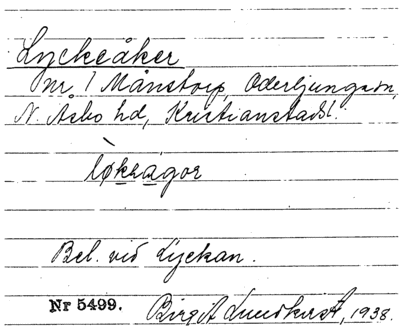 Lyckeåker
på nr 1 Månstorp, Oderljunga sn,
N. Åsbo hd, Kristianstads l.
l̀økrågor
Bel. vid Lyckan.
Nr 5499. Birgit Lundkvist, 1938.